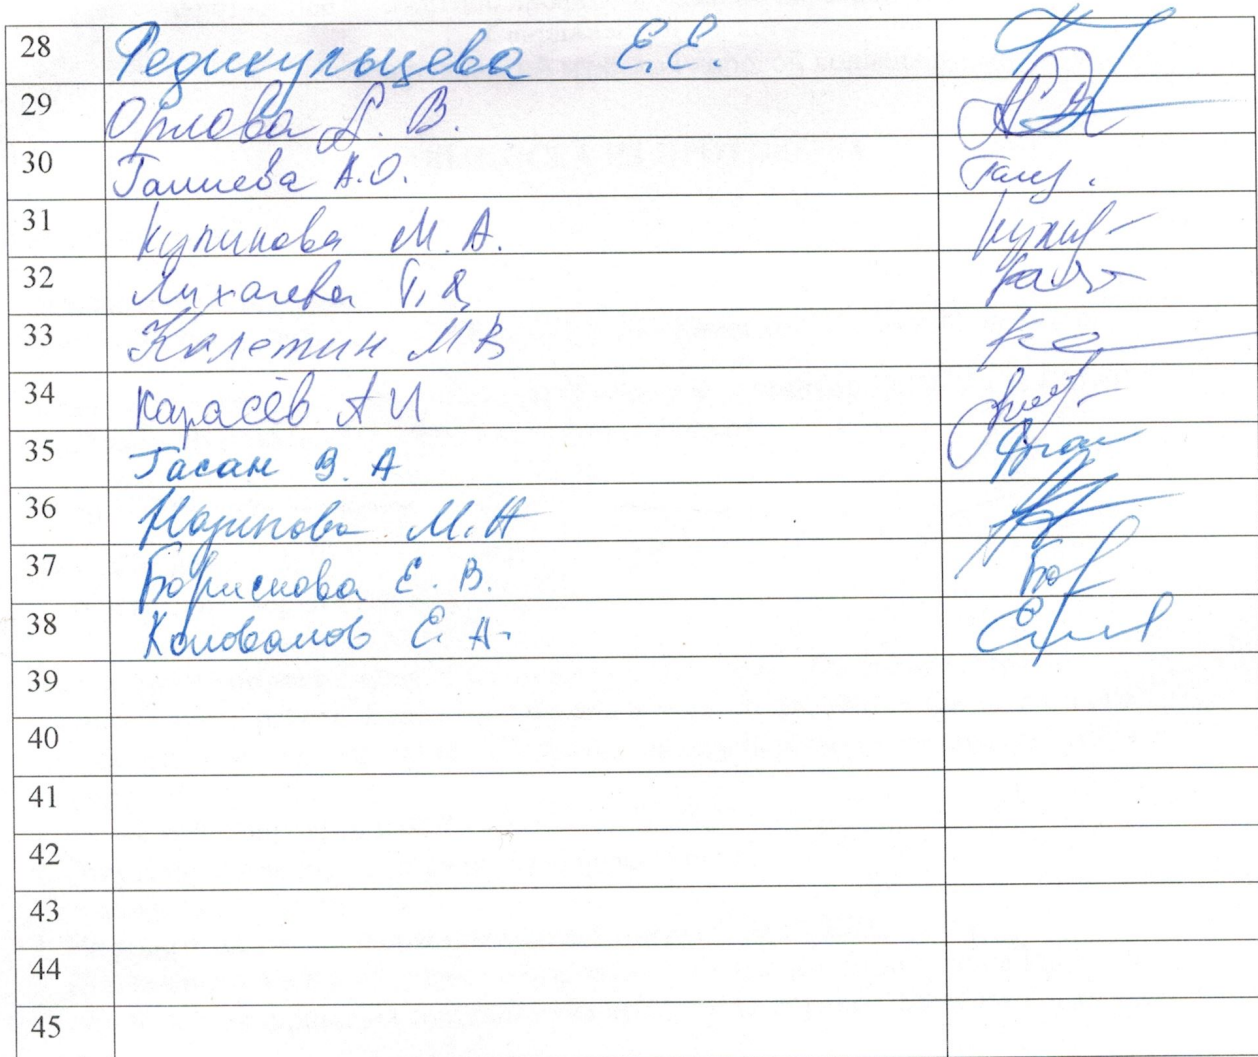 28 Редикульцева Е.Е.
29 Орлова А. В.
30 Галиева А.О.
31 Купинова М. А.
32 Лихачева
33 Калетин М В
34 Карасёв А И
35 Гасан В. А
36 М.А
37 Борискова Е. В.
38 Коновалов Е. А.
39
40
41
42
43
44
45